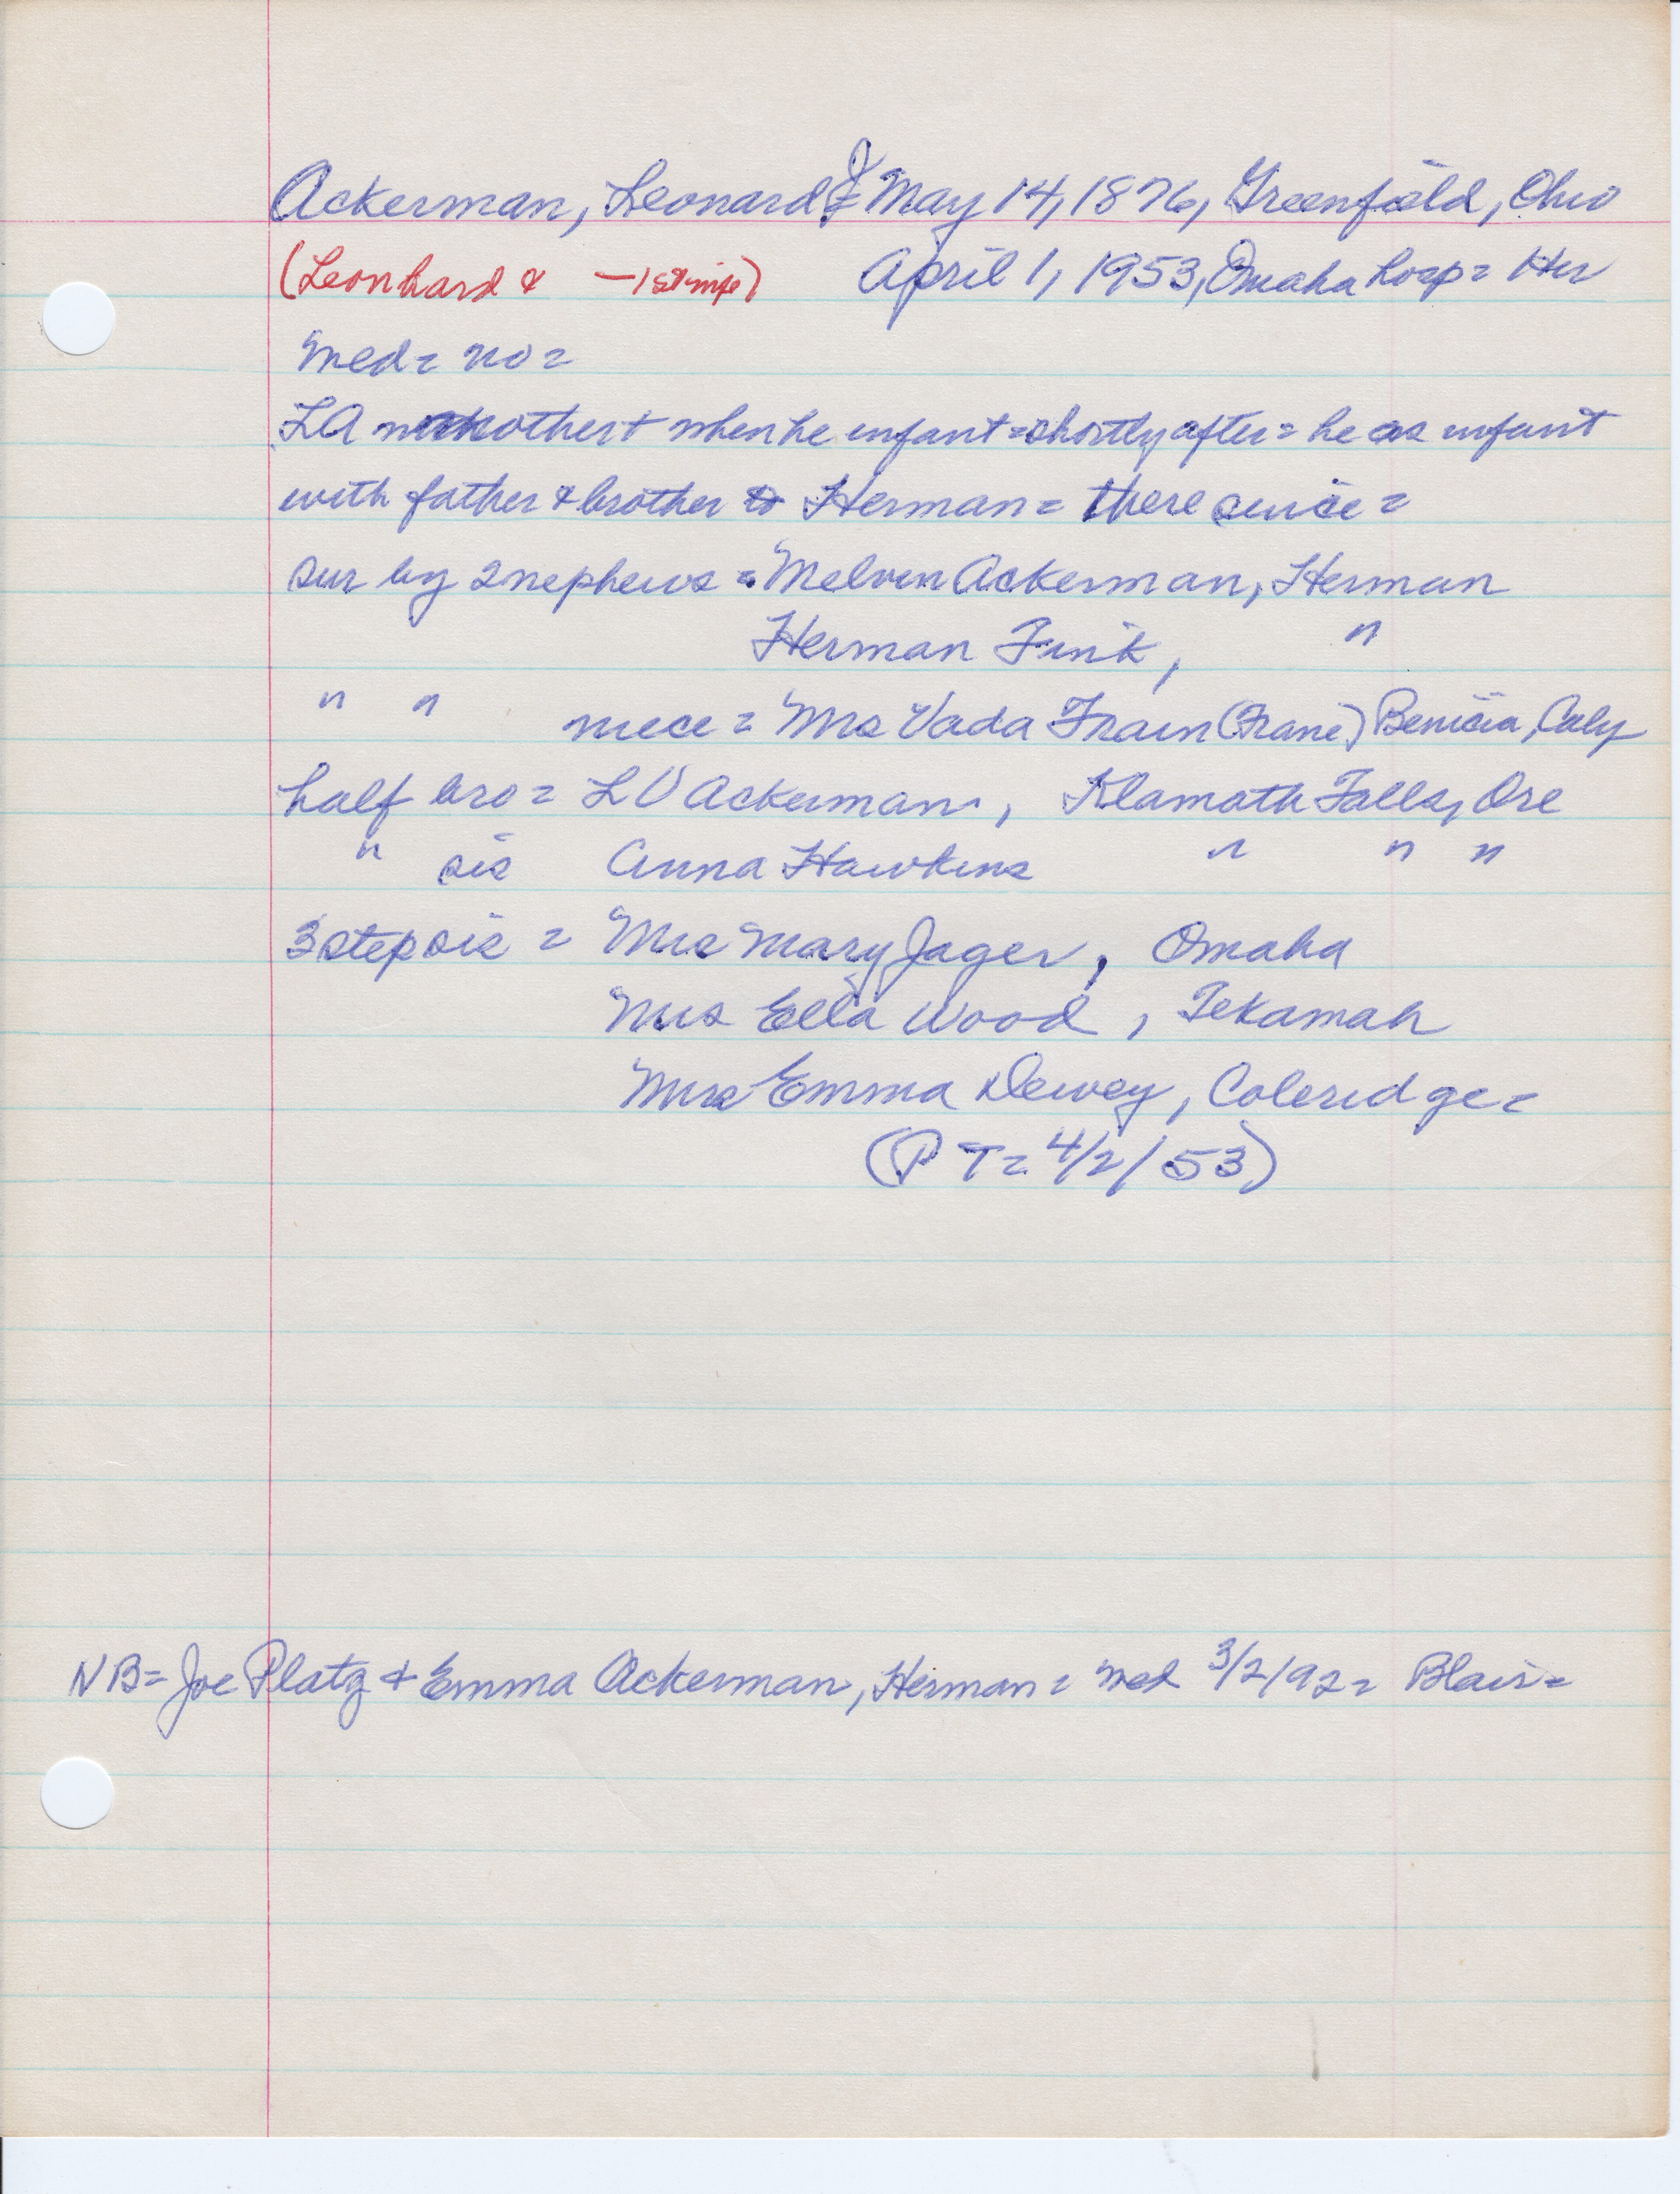 Ackerman, Leonard J = May 14, 1876, Greenfield, Ohio
(Leonhard & — 1st wife) April 1, 1953, Omaha hosp = Her
Med = no =
LA mother + when he infant = shortly after = he as infant
with father & brother to Herman = there since =
sur by 2 nephews = Melvin Ackerman, Herman
Herman Fink, "
" " niece = Mrs Vada Frain (Frane) Benicia, Caly
half bro = L V Ackerman, Klamath Falls, Ore
" sis Anna Hawkins " " "
3 step sis = Mrs Mary Jager, Omaha
Mrs Ella Wood, Tekamah
Mrs Emma Dewey, Coleridge =
(PT = 4/2/53)
NB = Joe Platz & Emma Ackerman, Herman = med 3/2/92 = Blair =